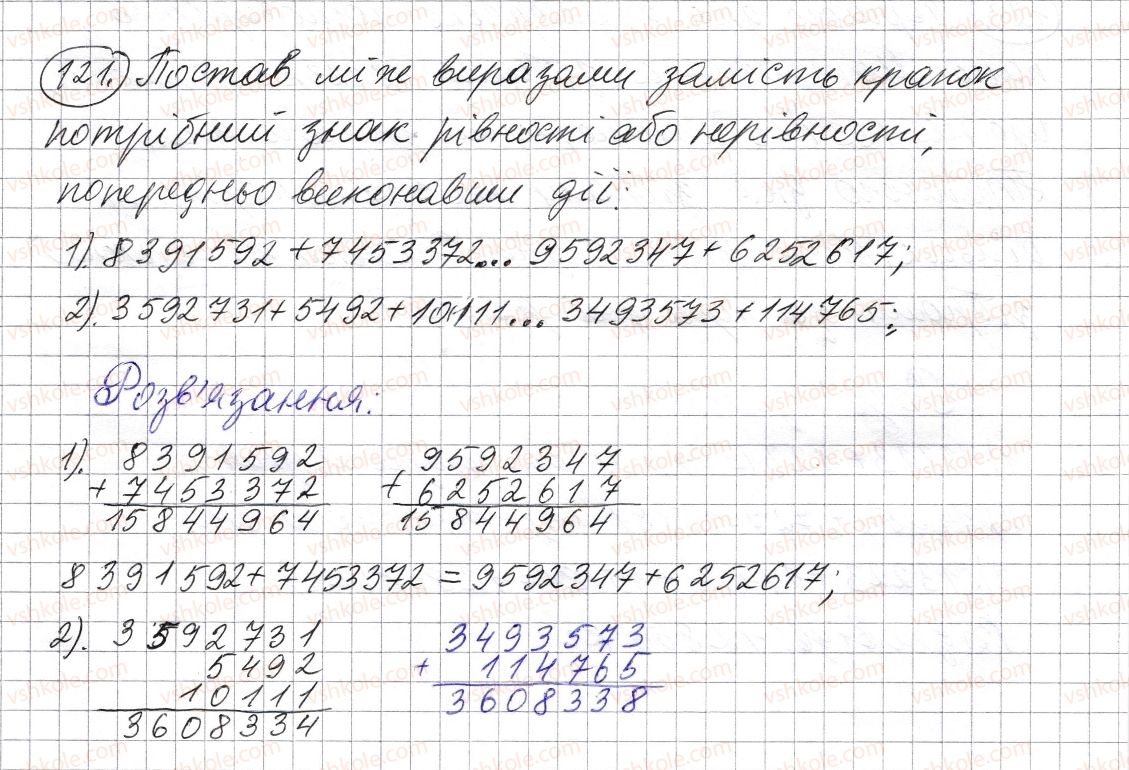 121. Постав між виразами замість крапок
потрібний знак рівності або нерівності,
попередньо виконавши дії:
1) 8391592 + 7453372... 9592347 + 6252617;
2). 3592731 + 5492 + 10111... 3493573 + 114765;
Розв'язання:
1). 8391592
+ 7453372
15844964
9592347
+ 6252617
15844964
8391592 + 7453372 = 9592347 + 6252617;
2). 3592731
5492
10111
3608334
3493573
+ 114765
3608338